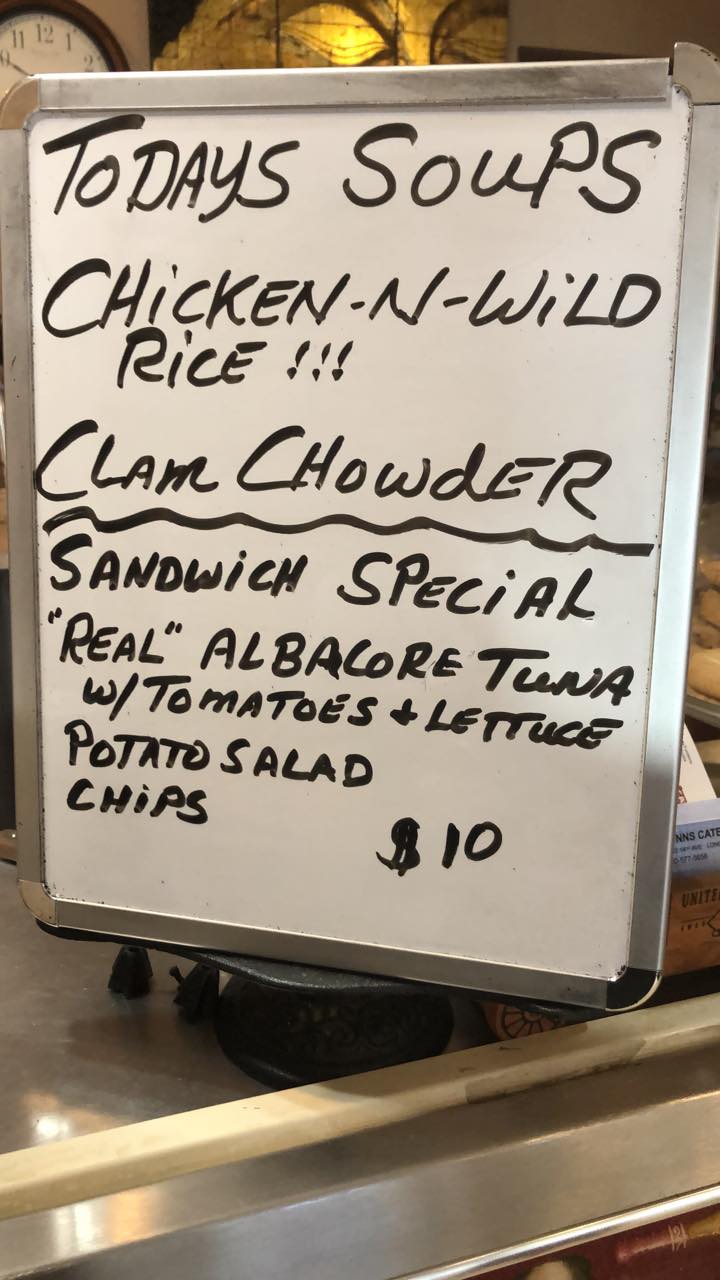 11 12 1
TODAYS SOUPS
CHiCKEN-N-WiLD
RiCE !!!
CLAM CHOWdER
SANDWiCH SPECiAL
"REAL" ALBACORE TUNA
W/TOMATOES + LETTUCE
POTATO SALAD
CHiPS
$10
NNS CATE
UNITE